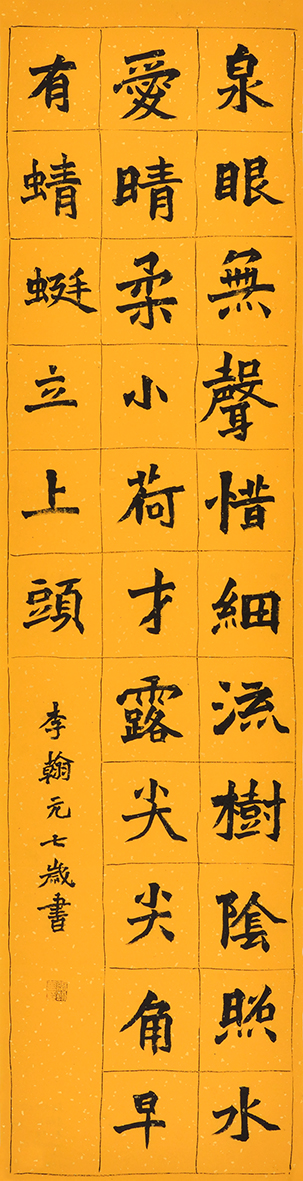 泉眼無聲惜細流樹陰照水
愛晴柔小荷才露尖尖角早
有蜻蜓立上頭
李翰元七歲書